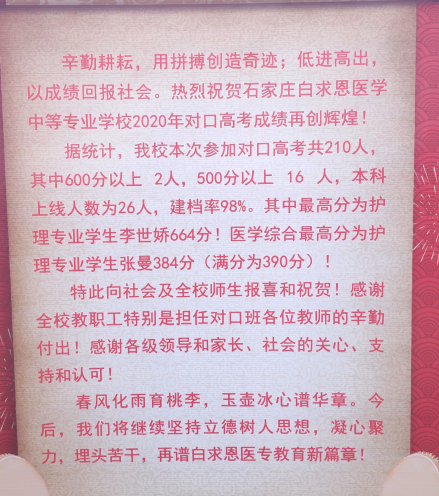 辛勤耕耘，用拼搏创造奇迹；低进高出，
以成绩回报社会。热烈祝贺石家庄白求恩医学
中等专业学校2020年对口高考成绩再创辉煌！
据统计，我校本次参加对口高考共210人，
其中600分以上 2人，500分以上 16 人，本科
上线人数为26人，建档率98%。其中最高分为护
理专业学生李世娇664分！医学综合最高分为护
理专业学生张曼384分（满分为390分）！
特此向社会及全校师生报喜和祝贺！感谢
全校教职工特别是担任对口班各位教师的辛勤
付出！感谢各级领导和家长、社会的关心、支
持和认可！
春风化雨育桃李，玉壶冰心谱华章。今
后，我们将继续坚持立德树人思想，凝心聚
力，埋头苦干，再谱白求恩医专教育新篇章！